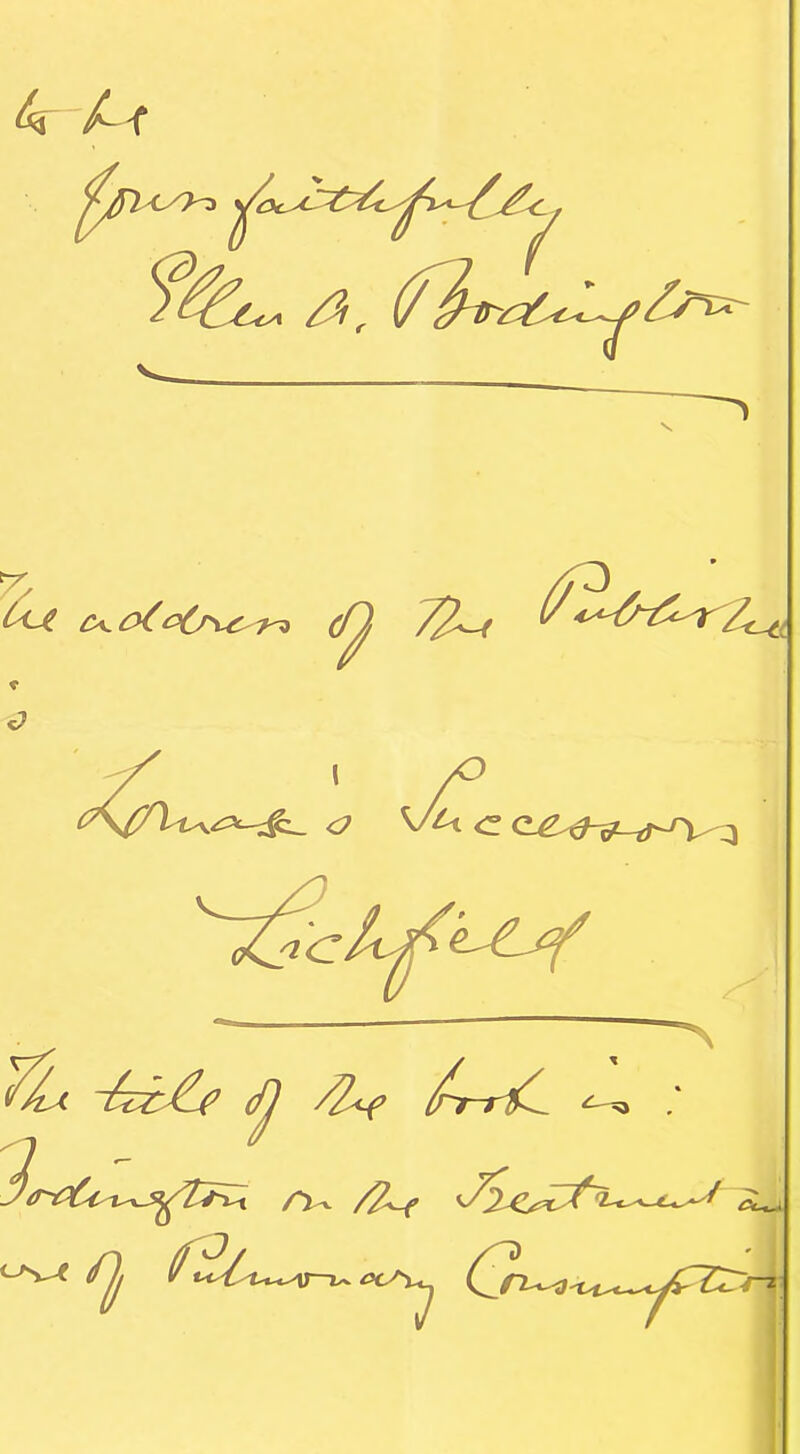 to be
Yours faithfully
Ellen A. Bodington
The address of the Publisher
is
Lomax's Successors
Lichfield
The title of the book is :
Bodington on the Treatment and
cure of Pulmonary Consumption